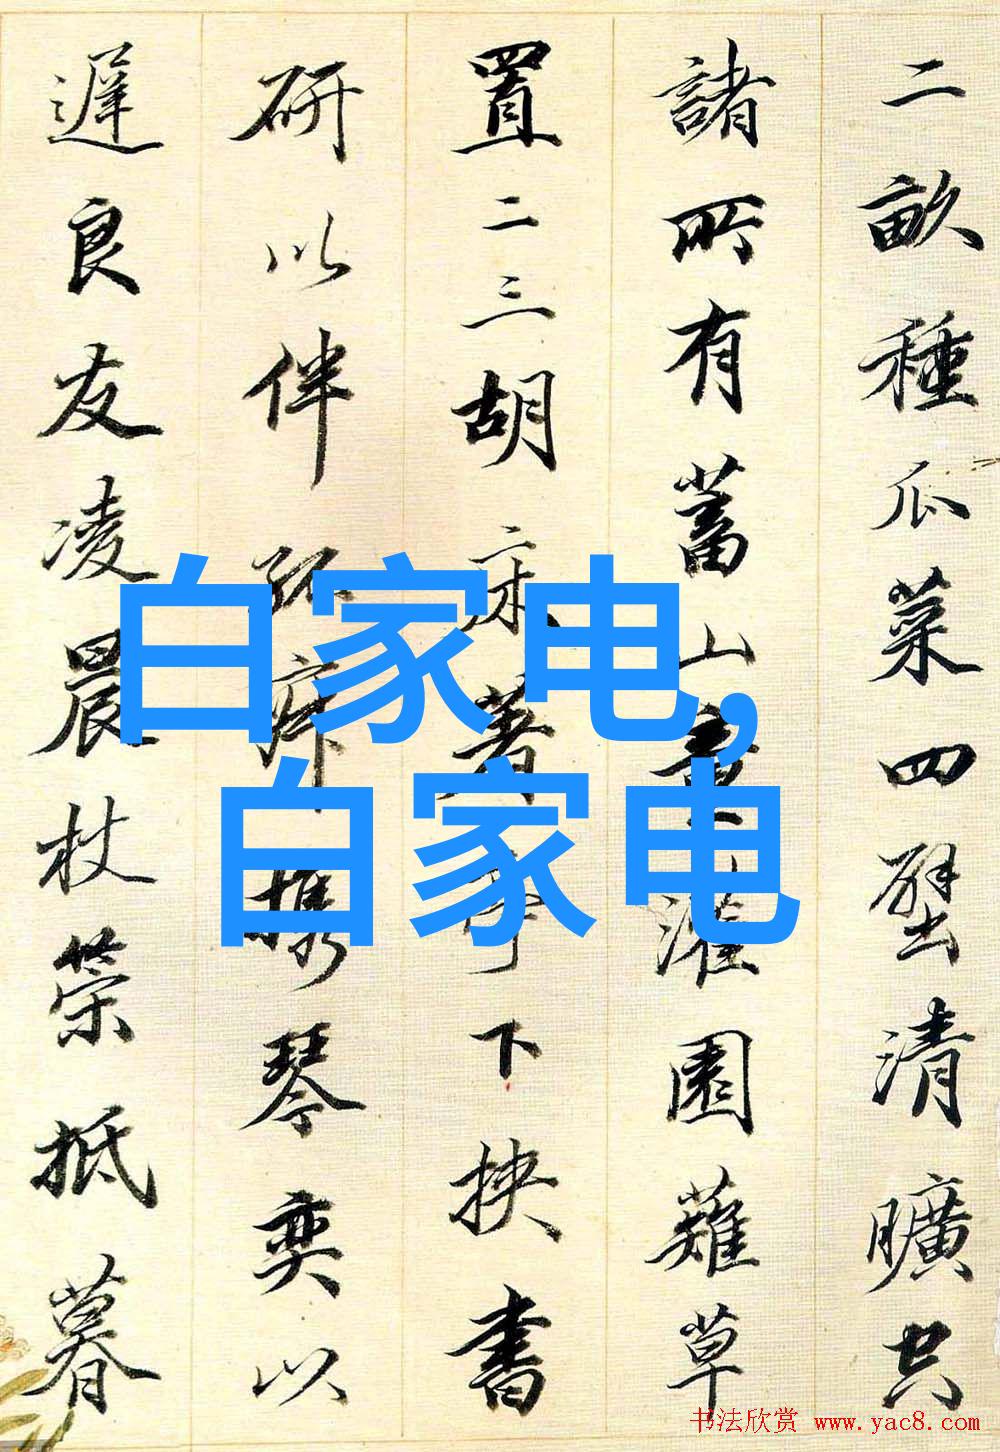 二畝種瓜菜四壁清曠空
諸所有蓄山童灌園薙草
置二三胡床著亭下挾書
研以伴孤寂攜琴奕以
遲良友凌晨杖策抵暮
白家电,
白家电
书法欣赏 www.yac8.com